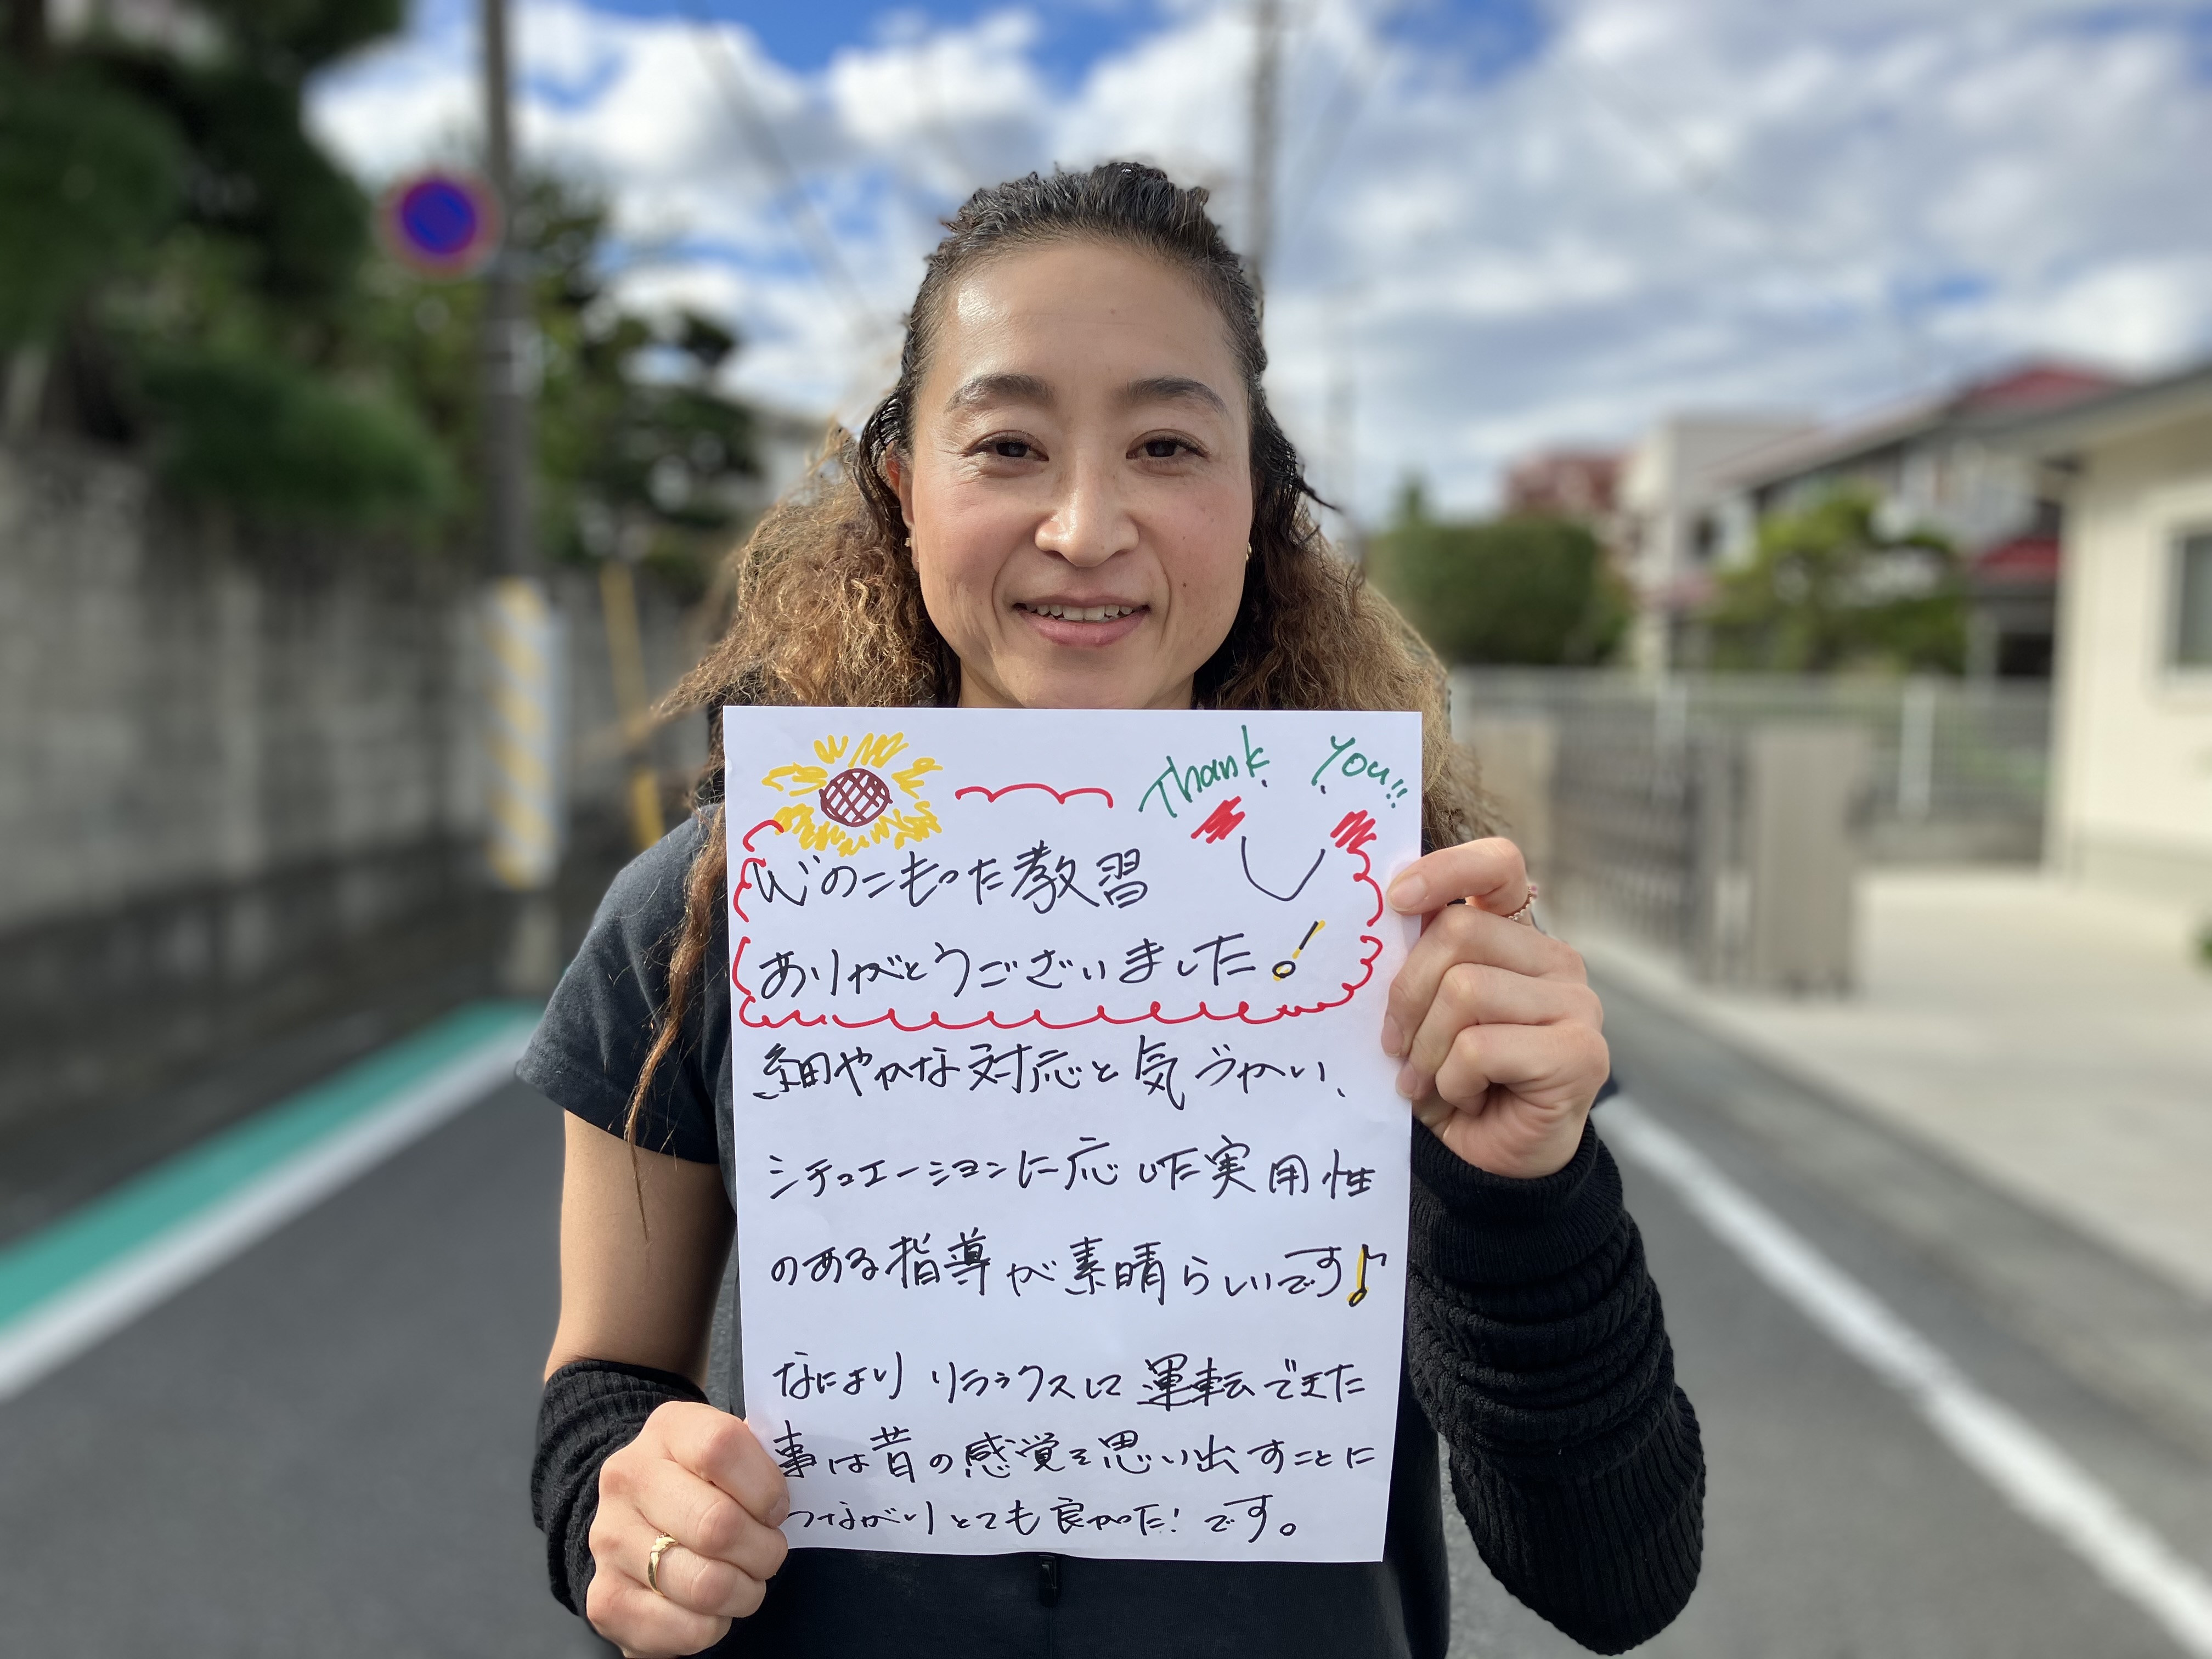 Thank You!!
心のこもった教習
ありがとうございました!
細やかな対応と気づかい、
シチュエーションに応じた実用性
のある指導が素晴らしいです♪
なにより リラックスして運転できた
事は昔の感覚を思い出すことに
つながりとても良かった!です。